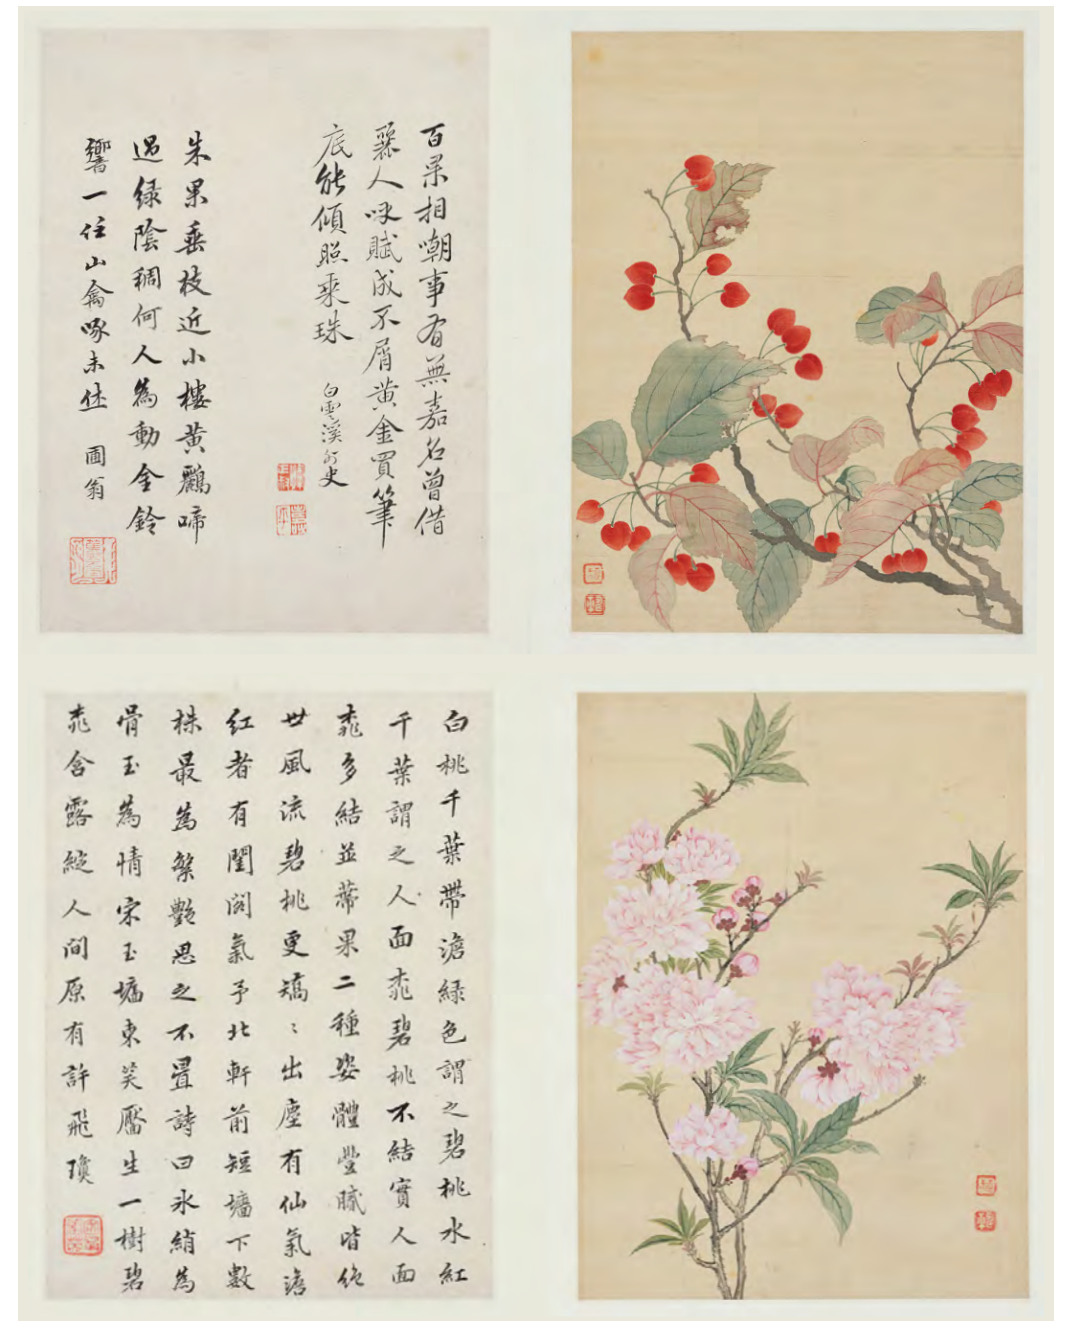 百果相嘲事有無嘉名曾借
麗人咏賦成不屑黄金買筆
底能傾照乘珠
白雲溪外史
朱果垂枝近小樓黄鸝啼
過緑陰稠何人為動金鈴
響一任山禽啄未休
圃翁
白桃千葉帶澹緑色謂之碧桃水紅
千葉謂之人面桃碧桃不結實人面
桃多結並蒂果二種姿體豐膩皆絶
世風流碧桃更矯〻出塵有仙氣澹
紅者有閨閤氣予北軒前短墻下數
株最為繁艷思之不置詩曰氷綃為
骨玉為情宋玉墻東笑靨生一樹碧
桃含露綻人間原有許飛瓊